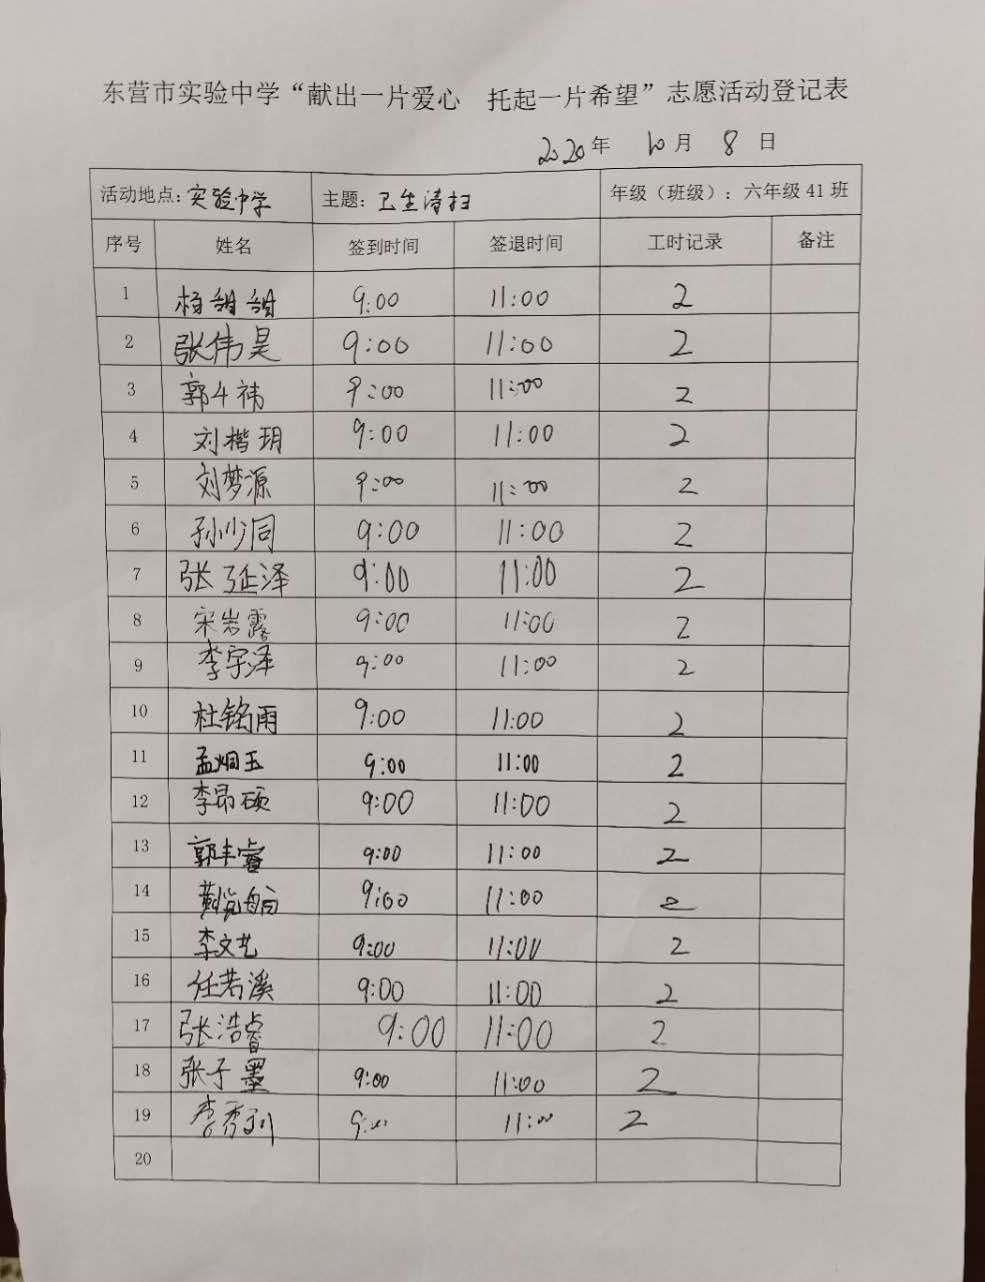 东营市实验中学“献出一片爱心 托起一片希望”志愿活动登记表
2020年 10月 8日
活动地点:实验中学 主题:卫生清扫 年级（班级）:六年级41班
序号 姓名 签到时间 签退时间 工时记录 备注
1 杨甜甜 9:00 11:00 2
2 张伟昊 9:00 11:00 2
3 郭 祎 9:00 11:00 2
4 刘楷玥 9:00 11:00 2
5 刘梦源 9:00 11:00 2
6 孙少同 9:00 11:00 2
7 张延泽 9:00 11:00 2
8 宋岩露 9:00 11:00 2
9 李宇泽 9:00 11:00 2
10 杜铭雨 9:00 11:00 2
11 孟炯玉 9:00 11:00 2
12 李昂硕 9:00 11:00 2
13 郭丰睿 9:00 11:00 2
14 9:00 11:00 2
15 李文艺 9:00 11:00 2
16 任若溪 9:00 11:00 2
17 张浩睿 9:00 11:00 2
18 张子墨 9:00 11:00 2
19 李秀 9:00 11:00 2
20